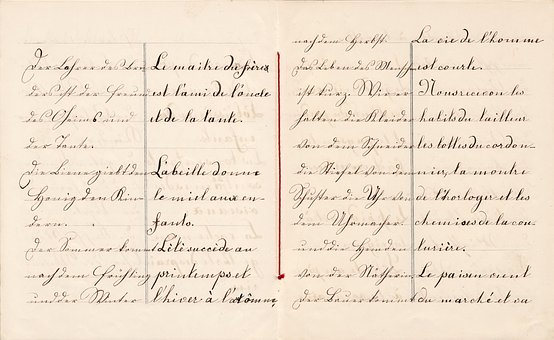 Der Lehrer des Bru
ders ist der Freund
des Oheims und
der Tante.
Die Biene giebt den
Honig den Kin-
dern.
Der Sommer kommt
nach dem Frühling
und der Winter
Le maitre du frère
est l'ami de l'oncle
et de la tante.
L'abeille donne
le miel aux en-
fants.
L'été succède au
printemps et
l'hiver à l'
nach dem Herbst.
Das Leben des
ist kurz. Wir er-
halten die Kleider
von dem Schneider
die Stiefel von dem
Schuster die Uhr von
dem Uhrmacher
und die Hemden
von der Nätherin
Der Bauer kommt
La vie de l'homme
est courte.
Nous recevons les
habits du tailleur
les bottes du cordon-
nier, la montre
de l'horloger et les
chemises de la cou-
turière.
Le paisan vient
du marché et va